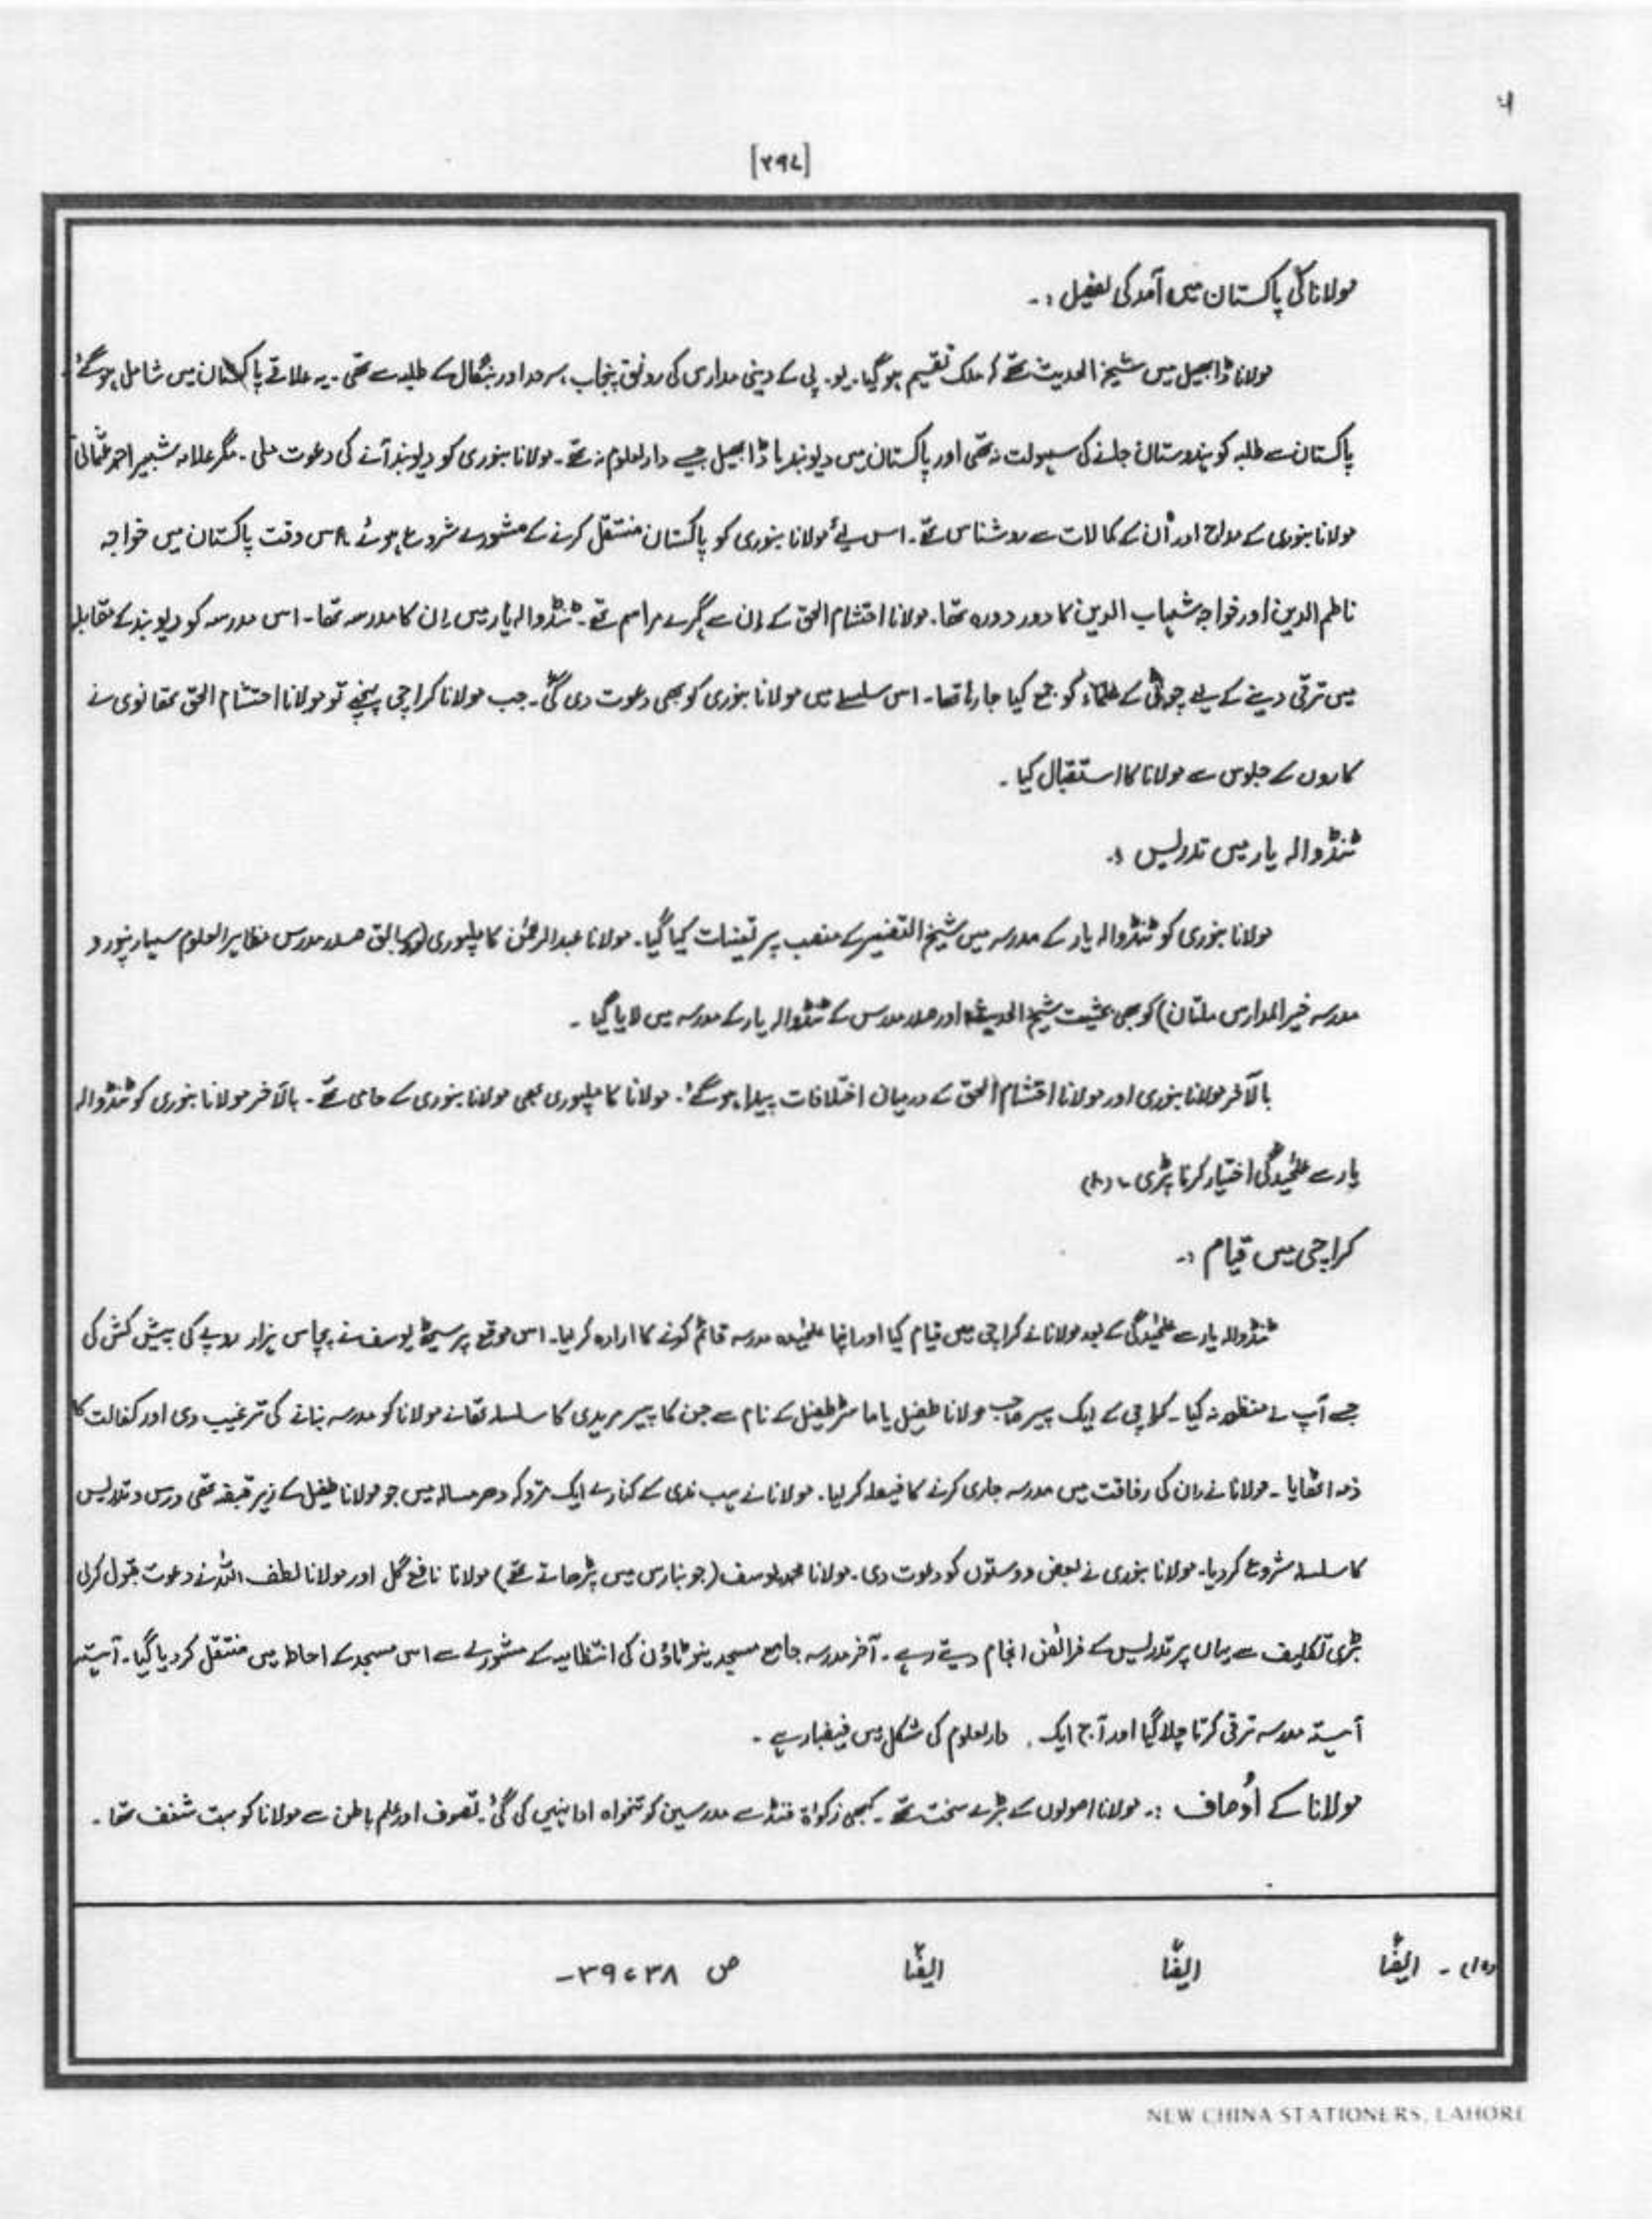 [۲۹۷]
مولانا کی پاکستان میں آمد کی تفصیل :۔
مولانا ڈابھیل میں شیخ الحدیث تھے کہ ملک تقسیم ہو گیا۔ یو۔ پی کے دینی مدارس کی رونق پنجاب، سرحد اور بنگال کے طلبہ سے تھی۔ یہ علاقے پاکستان میں شامل ہو گئے۔
پاکستان سے طلبہ کو ہندوستان جانے کی سہولت نہ تھی اور پاکستان میں دیوبند یا ڈابھیل جیسے دارالعلوم نہ تھے۔ مولانا بنوری کو دیوبند آنے کی دعوت ملی۔ مگر علامہ شبیر احمد عثمانی
مولانا بنوری کے مداح اور اُن کے کمالات سے روشناس تھے۔ اس لیے مولانا بنوری کو پاکستان منتقل کرنے کے مشورے شروع ہوئے۔ اس وقت پاکستان میں خواجہ
ناظم الدین اور خواجہ شہاب الدین کا دور دورہ تھا۔ مولانا احتشام الحق کے اِن سے گہرے مراسم تھے۔ ٹنڈوالہ یار میں اِن کا مدرسہ تھا۔ اس مدرسہ کو دیوبند کے مقابلہ
میں ترقی دینے کے لیے چوٹی کے علماء کو جمع کیا جا رہا تھا۔ اس سلسلے میں مولانا بنوری کو بھی دعوت دی گئی۔ جب مولانا کراچی پہنچے تو مولانا احتشام الحق تھانوی نے
کاروں کے جلوس سے مولانا کا استقبال کیا۔
ٹنڈوالہ یار میں تدریس :۔
مولانا بنوری کو ٹنڈوالہ یار کے مدرسہ میں شیخ التفسیر کے منصب پر تعینات کیا گیا۔ مولانا عبدالرحمٰن کاملپوری (سابق صدر مدرس مظاہر العلوم سہارنپور و
مدرسہ خیر المدارس ملتان) کو بھی بحثیت شیخ الحدیث اور صدر مدرس کے ٹنڈوالہ یار کے مدرسہ میں لایا گیا۔
بالآخر مولانا بنوری اور مولانا احتشام الحق کے درمیان اختلافات پیدا ہو گئے۔ مولانا کاملپوری بھی مولانا بنوری کے حامی تھے۔ بالآخر مولانا بنوری کو ٹنڈوالہ
یار سے علیٰحدگی اختیار کرنا پڑی۔
کراچی میں قیام :۔
ٹنڈوالہ یار سے علیٰحدگی کے بعد مولانا نے کراچی میں قیام کیا اور اپنا علیٰحدہ مدرسہ قائم کرنے کا ارادہ کر لیا۔ اس موقع پر سیٹھ یوسف نے پچاس ہزار روپے کی پیش کش کی
جسے آپ نے منظور نہ کیا۔ کراچی کے ایک پیر صاحب مولانا طفیل یا ماسٹر طفیل کے نام سے جن کا پیر مریدی کا سلسلہ تھا نے مولانا کو مدرسہ بنانے کی ترغیب دی اور کفالت کا
ذمہ اٹھایا۔ مولانا نے ان کی رفاقت میں مدرسہ جاری کرنے کا فیصلہ کر لیا۔ مولانا نے سب ندی کے کنارے ایک متروکہ دھرمسالہ میں جو مولانا طفیل کے زیر قبضہ تھی درس و تدریس
کا سلسلہ شروع کر دیا۔ مولانا بنوری نے بعض دوستوں کو دعوت دی۔ مولانا محمد یوسف (جو بنارس میں پڑھاتے تھے) مولانا نافع گل اور مولانا لطف اللہ نے دعوت قبول کر لی
بڑی تکلیف سے یہاں پر تدریس کے فرائض انجام دیتے رہے۔ آخر مدرسہ جامع مسجد نیو ٹاؤن کی انتظامیہ کے مشورے سے اس مسجد کے احاطہ میں منتقل کر دیا گیا۔ آہستہ
آہستہ مدرسہ ترقی کرتا چلا گیا اور آج ایک دارالعلوم کی شکل میں فیضبار ہے۔
مولانا کے اَوصاف :۔ مولانا اصولوں کے بڑے سخت تھے۔ کبھی زکوٰۃ فنڈ سے مدرسین کو تنخواہ ادا نہیں کی گئی۔ تصوف اور علم باطن سے مولانا کو بہت شغف تھا۔
ایضًا ایضًا ایضًا ص ۳۸ ، ۳۹۔
NEW CHINA STATIONERS, LAHORE